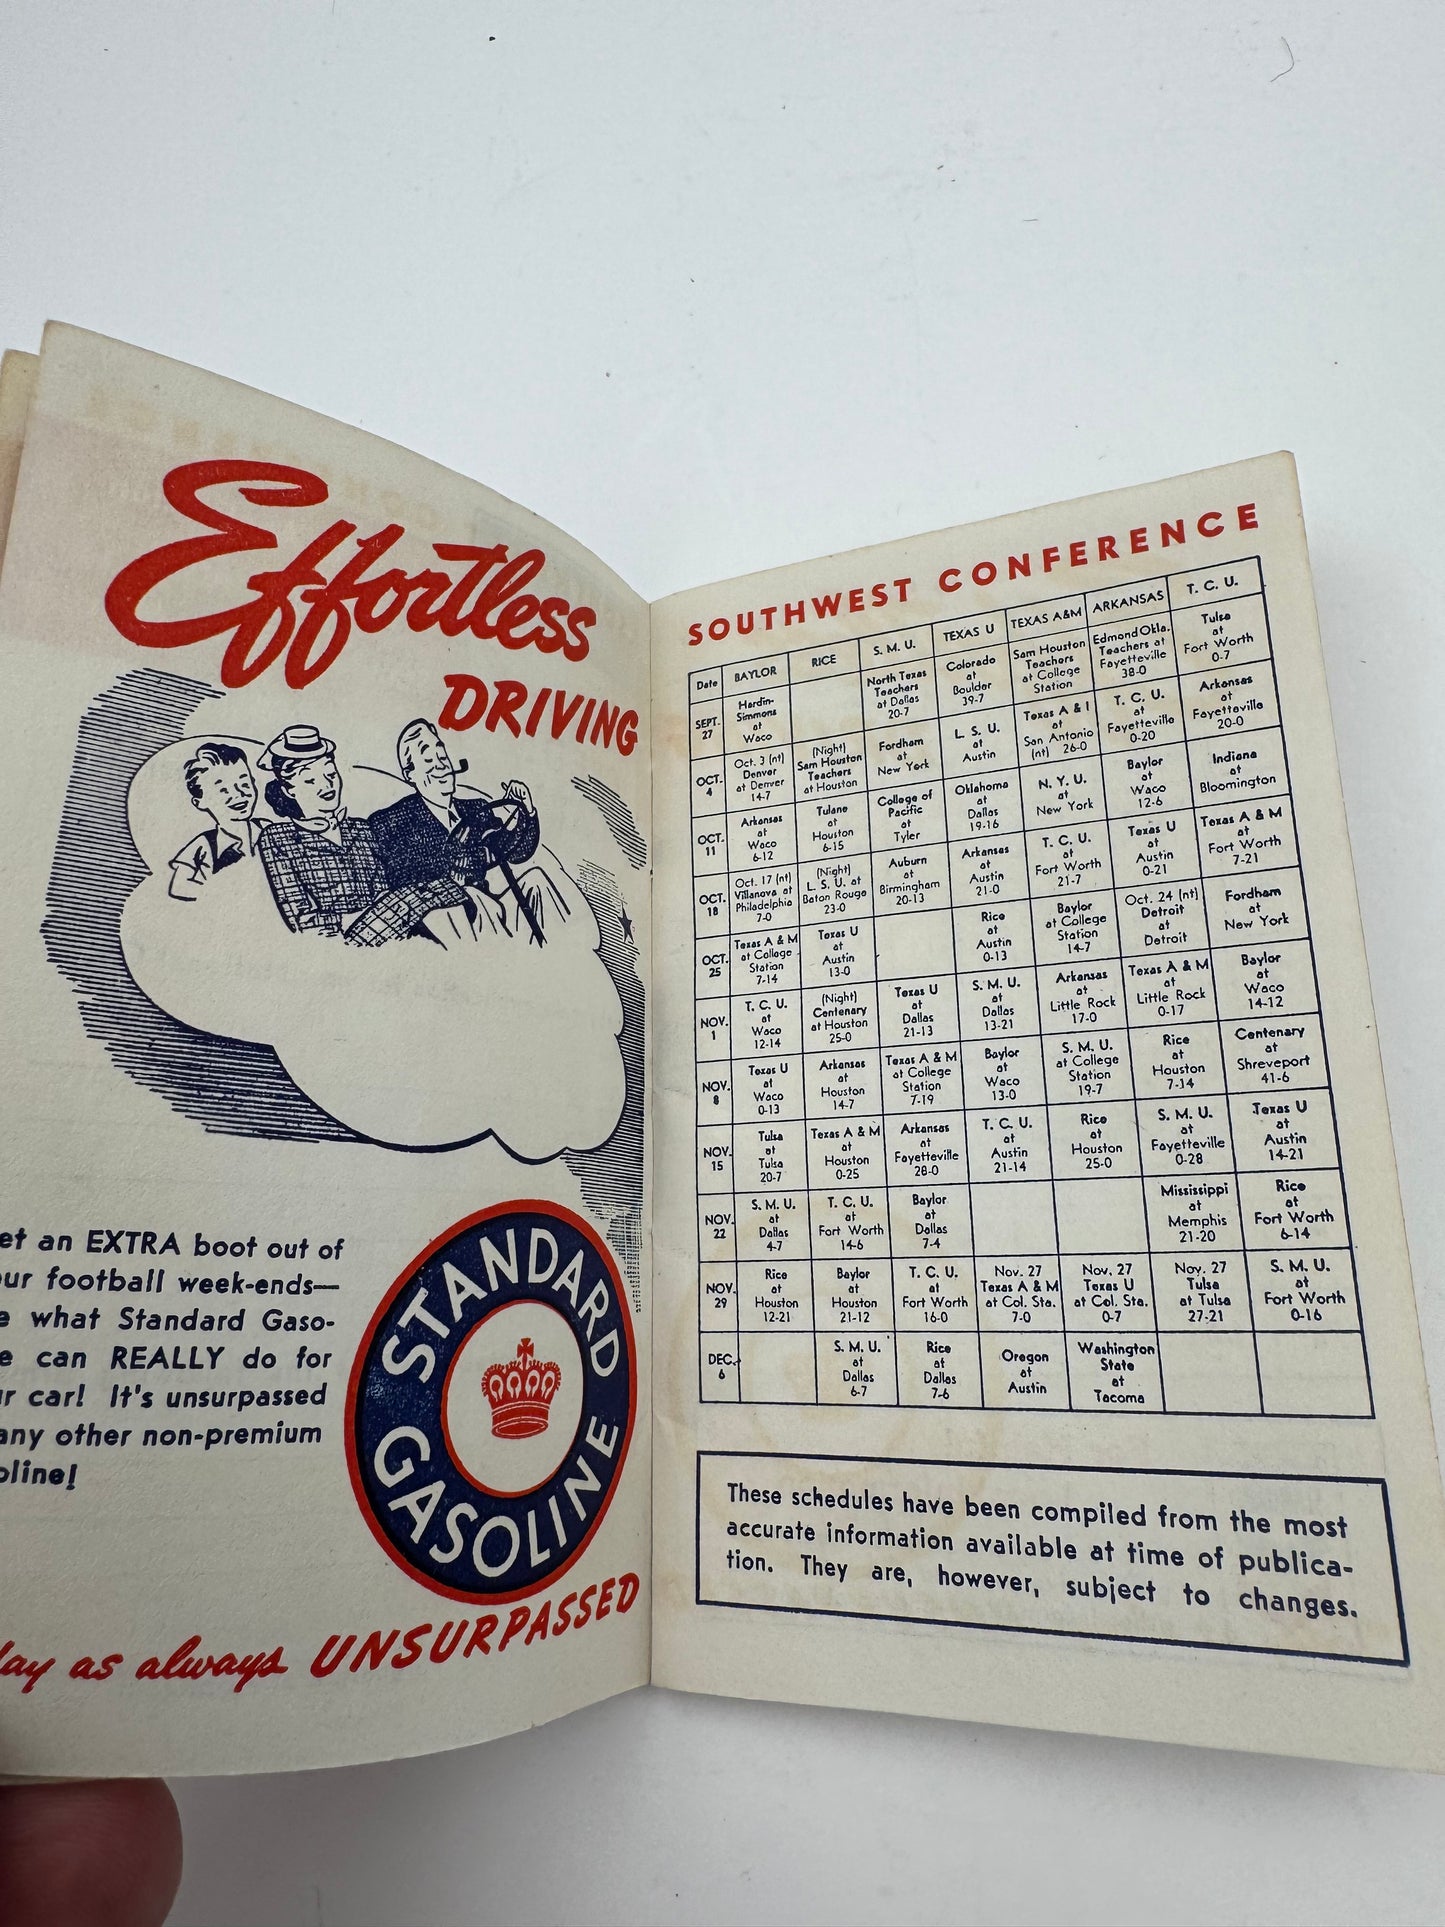 Effortless
DRIVING
et an EXTRA boot out of
ur football week-ends—
e what Standard Gaso-
e can REALLY do for
r car! It's unsurpassed
any other non-premium
oline!
STANDARD
GASOLINE
lay as always UNSURPASSED
SOUTHWEST CONFERENCE
Date BAYLOR RICE S. M. U. TEXAS U TEXAS A&M ARKANSAS T. C. U.
SEPT.
27
Hardin-
Simmons
at
Waco
North Texas
Teachers
at Dallas
20-7
Colorado
at
Boulder
39-7
Sam Houston
Teachers
at College
Station
Edmond Okla.
Teachers at
Fayetteville
38-0
Tulsa
at
Fort Worth
0-7
OCT.
4
Oct. 3 (nt)
Denver
at Denver
14-7
(Night)
Sam Houston
Teachers
at Houston
Fordham
at
New York
L. S. U.
at
Austin
Texas A & I
at
San Antonio
(nt) 26-0
T. C. U.
at
Fayetteville
0-20
Arkansas
at
Fayetteville
20-0
OCT.
11
Arkansas
at
Waco
6-12
Tulane
at
Houston
6-15
College of
Pacific
at
Tyler
Oklahoma
at
Dallas
19-16
N. Y. U.
at
New York
Baylor
at
Waco
12-6
Indiana
at
Bloomington
OCT.
18
Oct. 17 (nt)
Villanova at
Philadelphia
7-0
(Night)
L. S. U. at
Baton Rouge
23-0
Auburn
at
Birmingham
20-13
Arkansas
at
Austin
21-0
T. C. U.
at
Fort Worth
21-7
Texas U
at
Austin
0-21
Texas A & M
at
Fort Worth
7-21
OCT.
25
Texas A & M
at College
Station
7-14
Texas U
at
Austin
13-0
Rice
at
Austin
0-13
Baylor
at College
Station
14-7
Oct. 24 (nt)
Detroit
at
Detroit
Fordham
at
New York
NOV.
1
T. C. U.
at
Waco
12-14
(Night)
Centenary
at Houston
25-0
Texas U
at
Dallas
21-13
S. M. U.
at
Dallas
13-21
Arkansas
at
Little Rock
17-0
Texas A & M
at
Little Rock
0-17
Baylor
at
Waco
14-12
NOV.
8
Texas U
at
Waco
0-13
Arkansas
at
Houston
14-7
Texas A & M
at College
Station
7-19
Baylor
at
Waco
13-0
S. M. U.
at College
Station
19-7
Rice
at
Houston
7-14
Centenary
at
Shreveport
41-6
NOV.
15
Tulsa
at
Tulsa
20-7
Texas A & M
at
Houston
0-25
Arkansas
at
Fayetteville
28-0
T. C. U.
at
Austin
21-14
Rice
at
Houston
25-0
S. M. U.
at
Fayetteville
0-28
Texas U
at
Austin
14-21
NOV.
22
S. M. U.
at
Dallas
4-7
T. C. U.
at
Fort Worth
14-6
Baylor
at
Dallas
7-4
Mississippi
at
Memphis
21-20
Rice
at
Fort Worth
6-14
NOV.
29
Rice
at
Houston
12-21
Baylor
at
Houston
21-12
T. C. U.
at
Fort Worth
16-0
Nov. 27
Texas A & M
at Col. Sta.
7-0
Nov. 27
Texas U
at Col. Sta.
0-7
Nov. 27
Tulsa
at Tulsa
27-21
S. M. U.
at
Fort Worth
0-16
DEC.
6
S. M. U.
at
Dallas
6-7
Rice
at
Dallas
7-6
Oregon
at
Austin
Washington
State
at
Tacoma
These schedules have been compiled from the most
accurate information available at time of publica-
tion. They are, however, subject to changes.